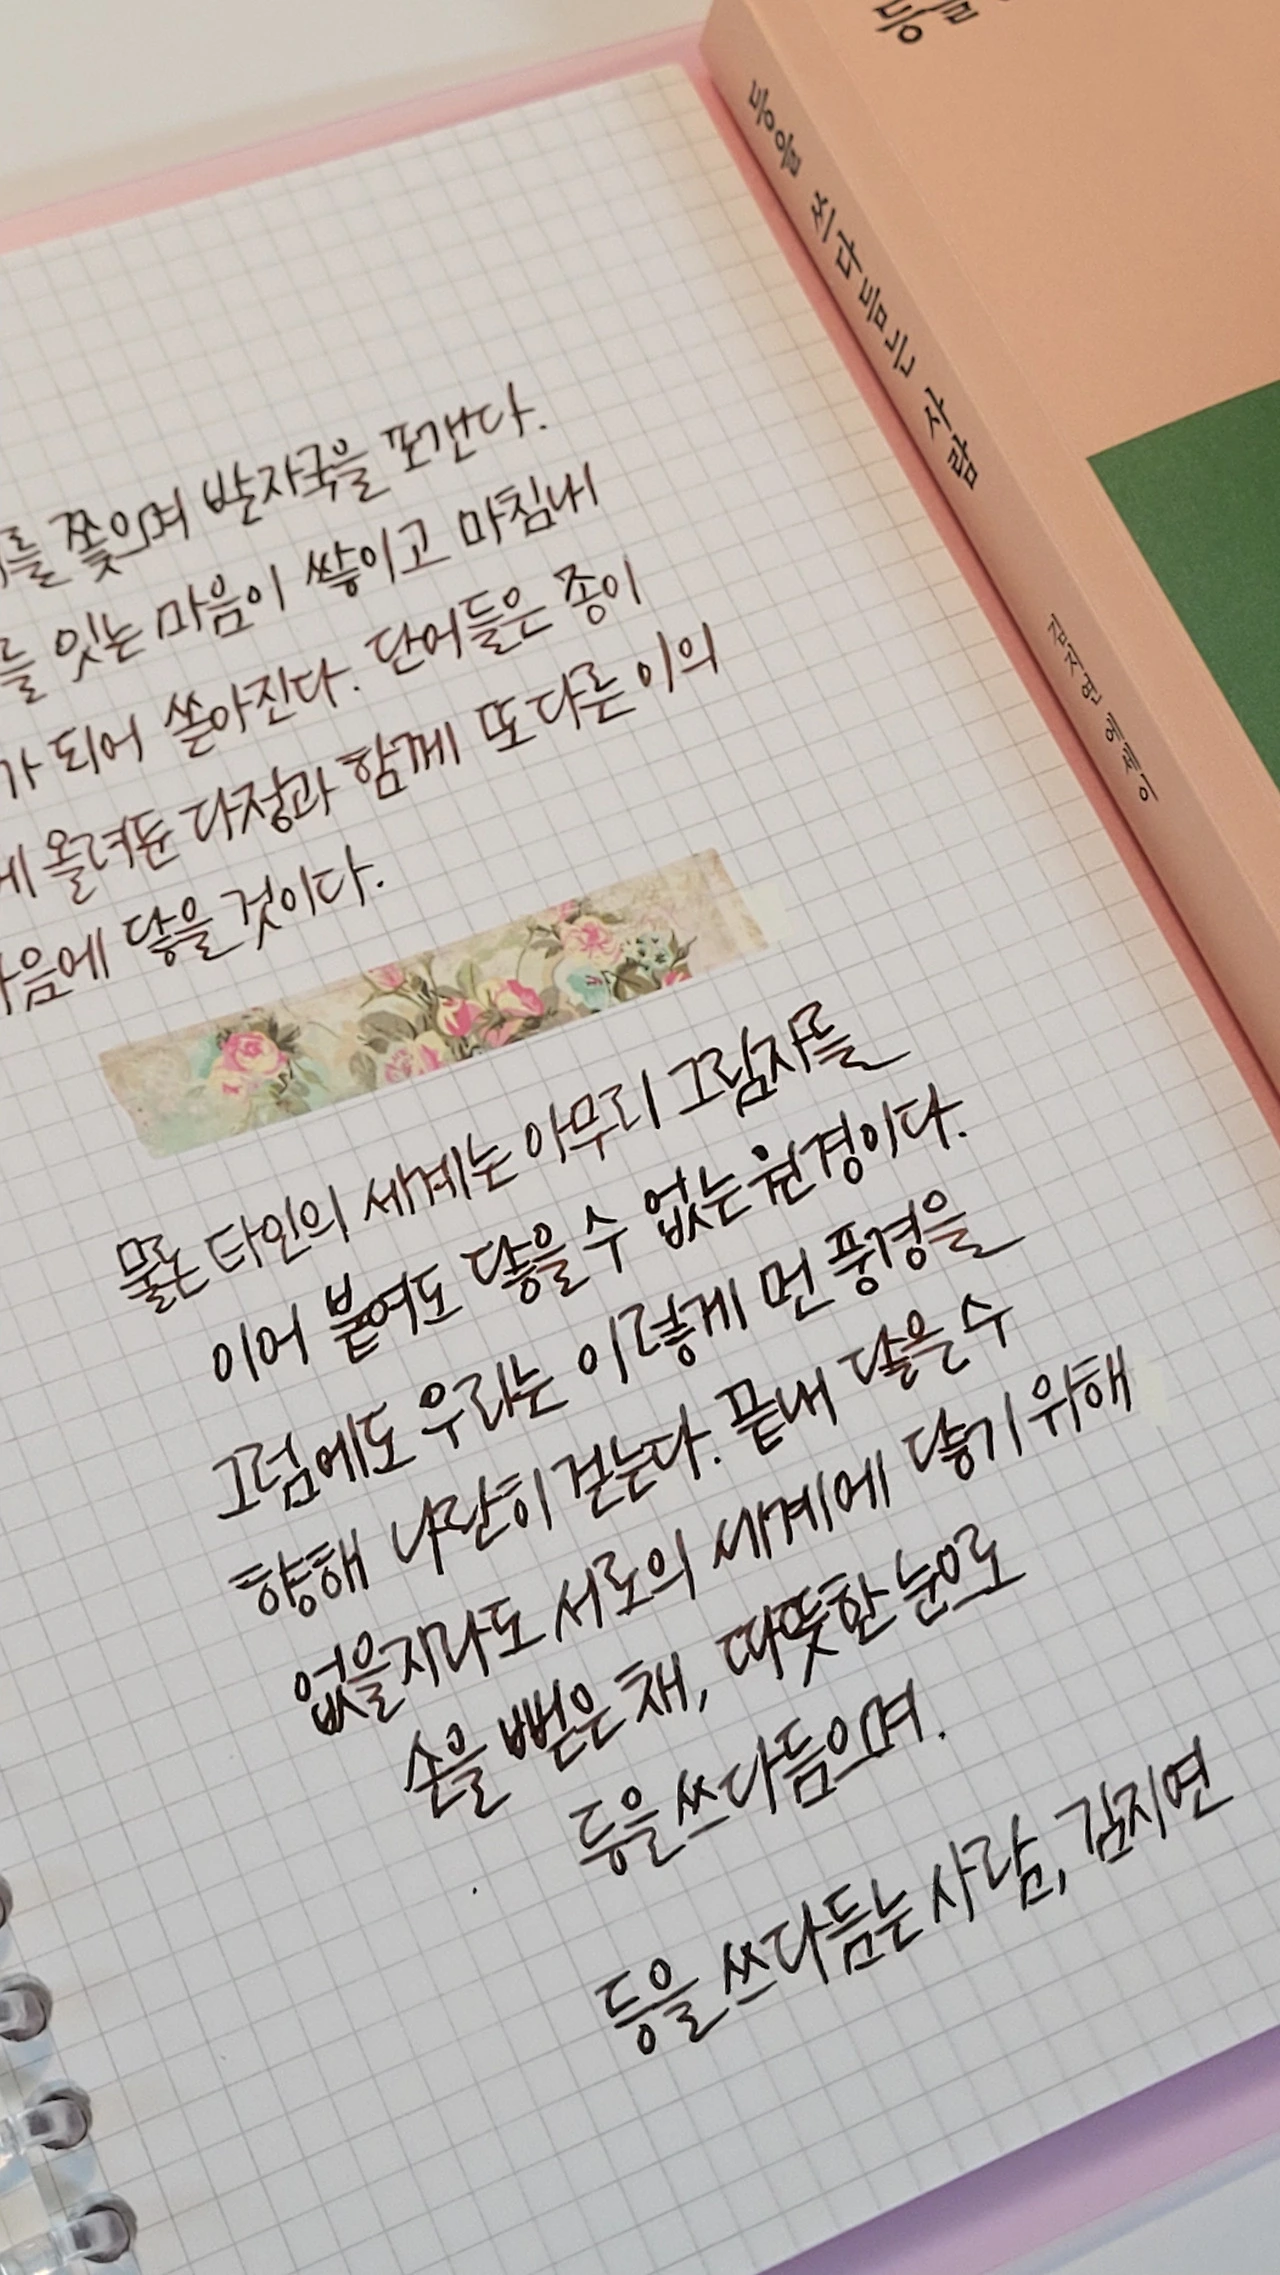 를 쫓으며 발자국을 포갠다.
를 잇는 마음이 쌓이고 마침내
가 되어 쏟아진다. 단어들은 종이
에 올려둔 다정과 함께 또 다른 이의
마음에 닿을 것이다.
물론 타인의 세계는 아무리 그림자를
이어 붙여도 닿을 수 없는 원경이다.
그럼에도 우리는 이렇게 먼 풍경을
향해 나란히 걷는다. 끝내 닿을 수
없을지라도 서로의 세계에 닿기 위해
손을 뻗은 채, 따뜻한 눈으로
등을 쓰다듬으며.
등을 쓰다듬는 사람, 김지연
등을 쓰다듬는 사람
김지연 에세이
등을